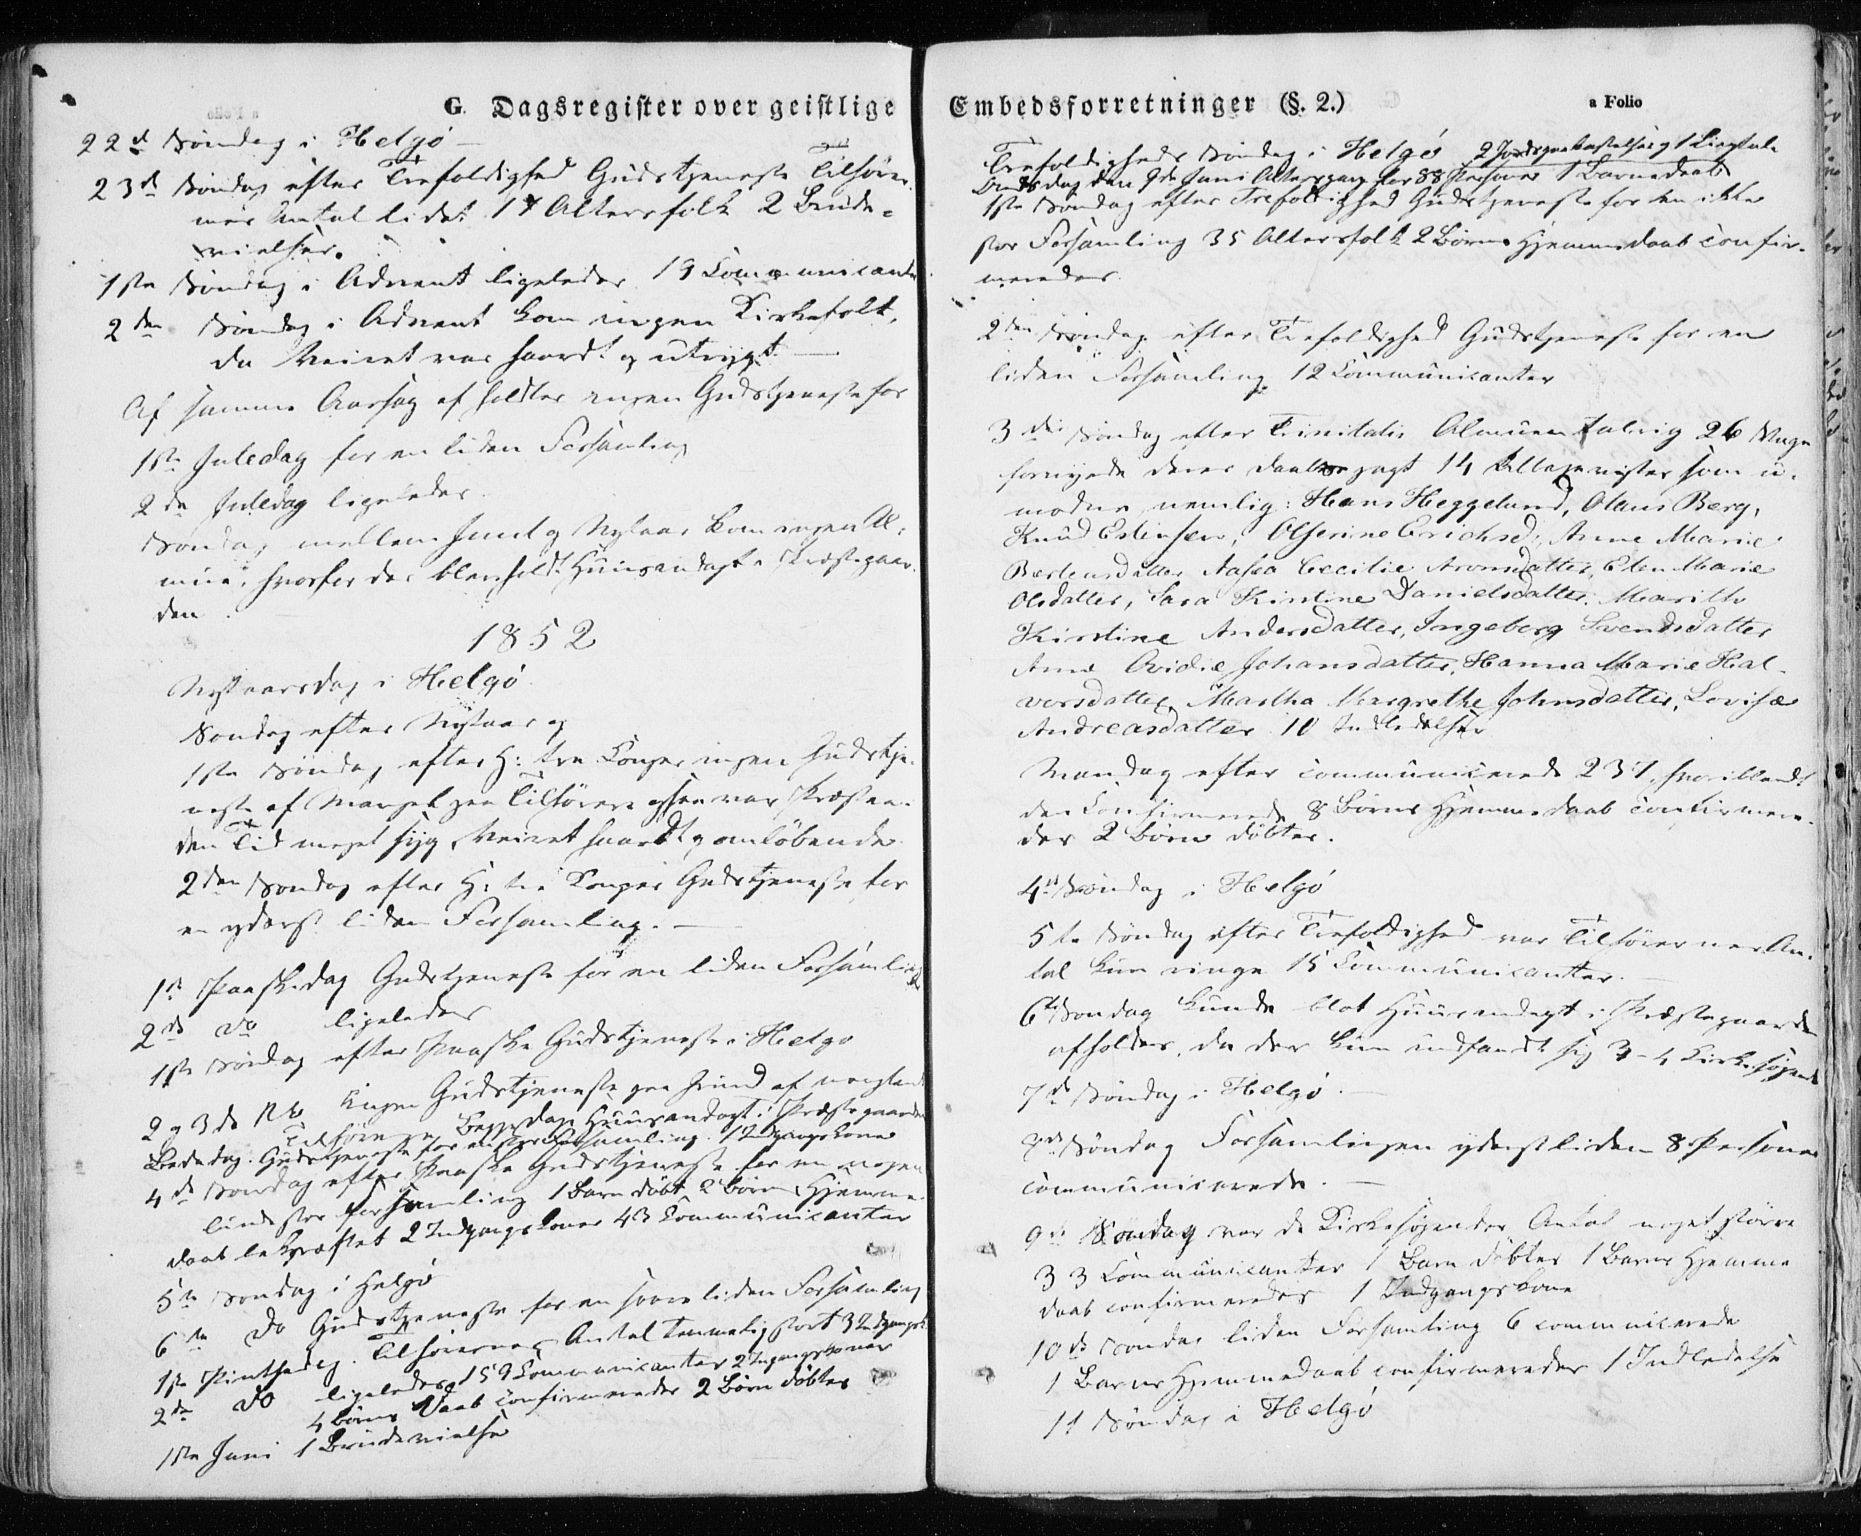 G. Dagsregister over geistlige
22d Søndag i Helgø —
23d Søndag efter Trefoldighed Gudstjeneste Tilhører
nes Antal lidet 17 Altersfolk 2 Brude-
vielser.
1ste Søndag i Advent ligeledes 19 Communicanter
2den Søndag i Advent kom ingen Kirkefolk,
da Veiret var haardt og utrygt. —
Af samme Aarsag afholdtes ingen Gudstjeneste for
1ste Juledag for en liden Forsamling
2den Juledag ligeledes.
Søndag mellem Juul og Nytaar kom ingen Al-
mue, hvorfor der blev holdt Huusandagt i Præstegaar-
den. —
1852
Nytaarsdag i Helgø
Søndag efter Nytaar og
1ste Søndag efter H: tre Konger ingen Gudstje-
neste af Mangel paa Tilhørere ogsaa var Præsten
den Tid meget syg, Veiret haardt og omløbende
2den Søndag efter H: tre Konger Gudstjeneste for
en yderst liden Forsamling. —
1ste Paaskedag Gudstjeneste for en liden Forsamling
2de do ligeledes
1ste Søndag efter Paaske Gudstjeneste i Helgø
2 og 3de Ingen Gudstjeneste paa Grund af manglende
Tilhørere Begge Dage Huusandagt i Præstegaarden
Bededag. Gudstjeneste for en stor Forsamling. 1 Indgangskone
4de Søndag efter Paaske Gudstjeneste for en nogen-
lunde stor Forsamling 1 Barn døbt 2 Børns Hjemme-
daab bekræftet 2 Indgangskoner 43 Communicanter
5te Søndag i Helgø
6te do Gudstjeneste for en svære liden Forsamling
1ste Pintsedag. Tilhørernes Antal temmelig stort 3 Indgangsk.
2den do ligeledes 159 Communicanter 2 Ingangskoner
4 Børns Daab confirmeredes 2 Børn døbtes
1ste Juni 1 Brudevielse
Embedsforretninger (§. 2.) a Folio
Trefoldigheds Søndag i Helgø 2 Jordspaakastelser og 1 Liigtale
Onsdag den 9de Juni Altergang for 88 Personer 1 Barnedaab
1ste Søndag efter Trefoldighed Gudstjeneste for en ikke
stor Forsamling 35 Altersfolk 2 Børns Hjemmedaab confir-
meredes.
2den Søndag efter Trefoldighed Gudstjeneste for en
liden Forsamling 12 Communicanter
3die Søndag efter Trinitatis Almuen talrig 26 Unge
fornyede deres Daabspagt 14 som u-
modne nemlig: Hans Heggelund, Olaus Berg,
Knud Estensen, Olserine Erichsd, Anne Marie
Bertensdatter, Aasea Cecilie Aronsdatter, Elen Marie
Olsdatter, Sara Kirstine Danielsdatter, Marith
Kirstine Andersdatter, Ingeborg Svendsdatter
Anne Ovidie Johansdatter, Hanna Marie Hal-
versdatter, Martha Margrethe Johnsdatter, Lovise
Andreasdatter 10 Indledelser
Mandag efter communicerede 237, hvoriblandt
de Confirmerede 8 Børns Hjemmedaab confirmere-
des 2 Børn døbtes.
4de Søndag i Helgø
5te Søndag efter Trefoldighed var Tilhørernes An-
tal kun ringe 15 Communicanter. —
6te Søndag kunde blot Huusandagt i Præstegaarden
afholdes, da der kun indfandt sig 3-4 Kirkesøgende
7de Søndag i Helgø. —
8de Søndag Forsamlingen yderst liden 8 Personer
communicerede. —
9de Søndag var de Kirkesøgendes Antal noget større
33 Communicanter 1 Barn døbtes 1 Barns Hjemme
daab confirmeredes 1 Indgangskone
10de Søndag liden Forsamling 6 communicerede
1 Barns Hjemmedaab confirmeredes 1 Indledelse
11 Søndag i Helgø